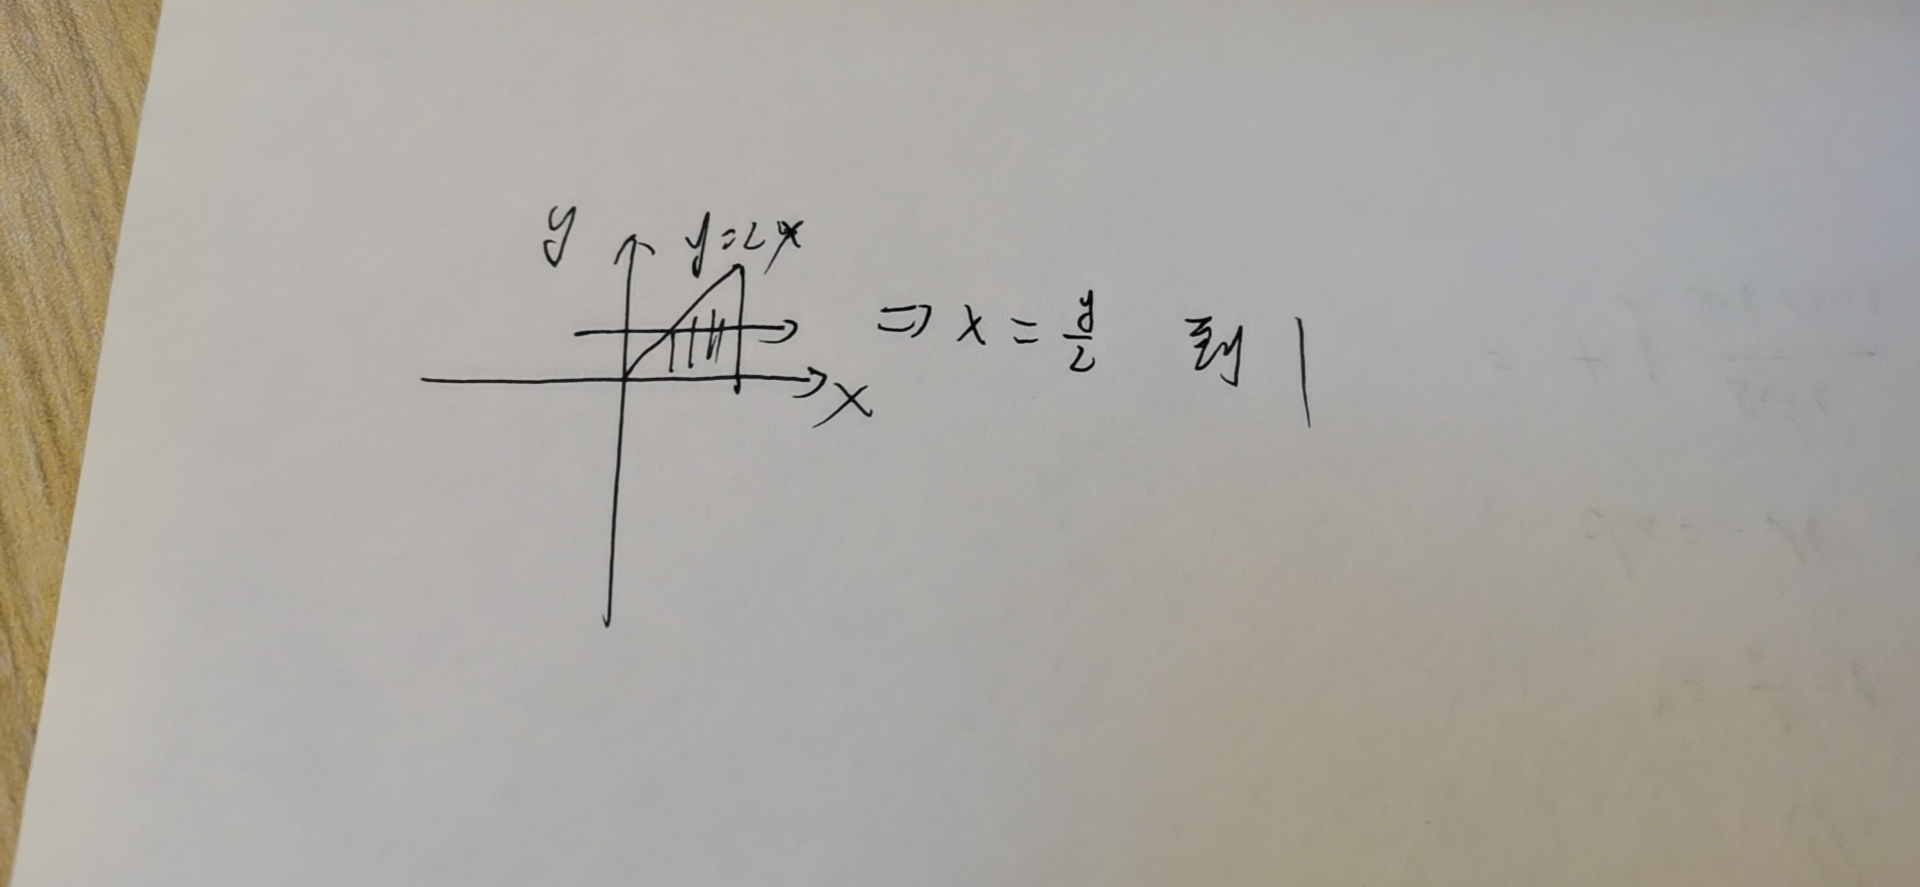 y
y=2x
⇒ x = y/2 到 1
x